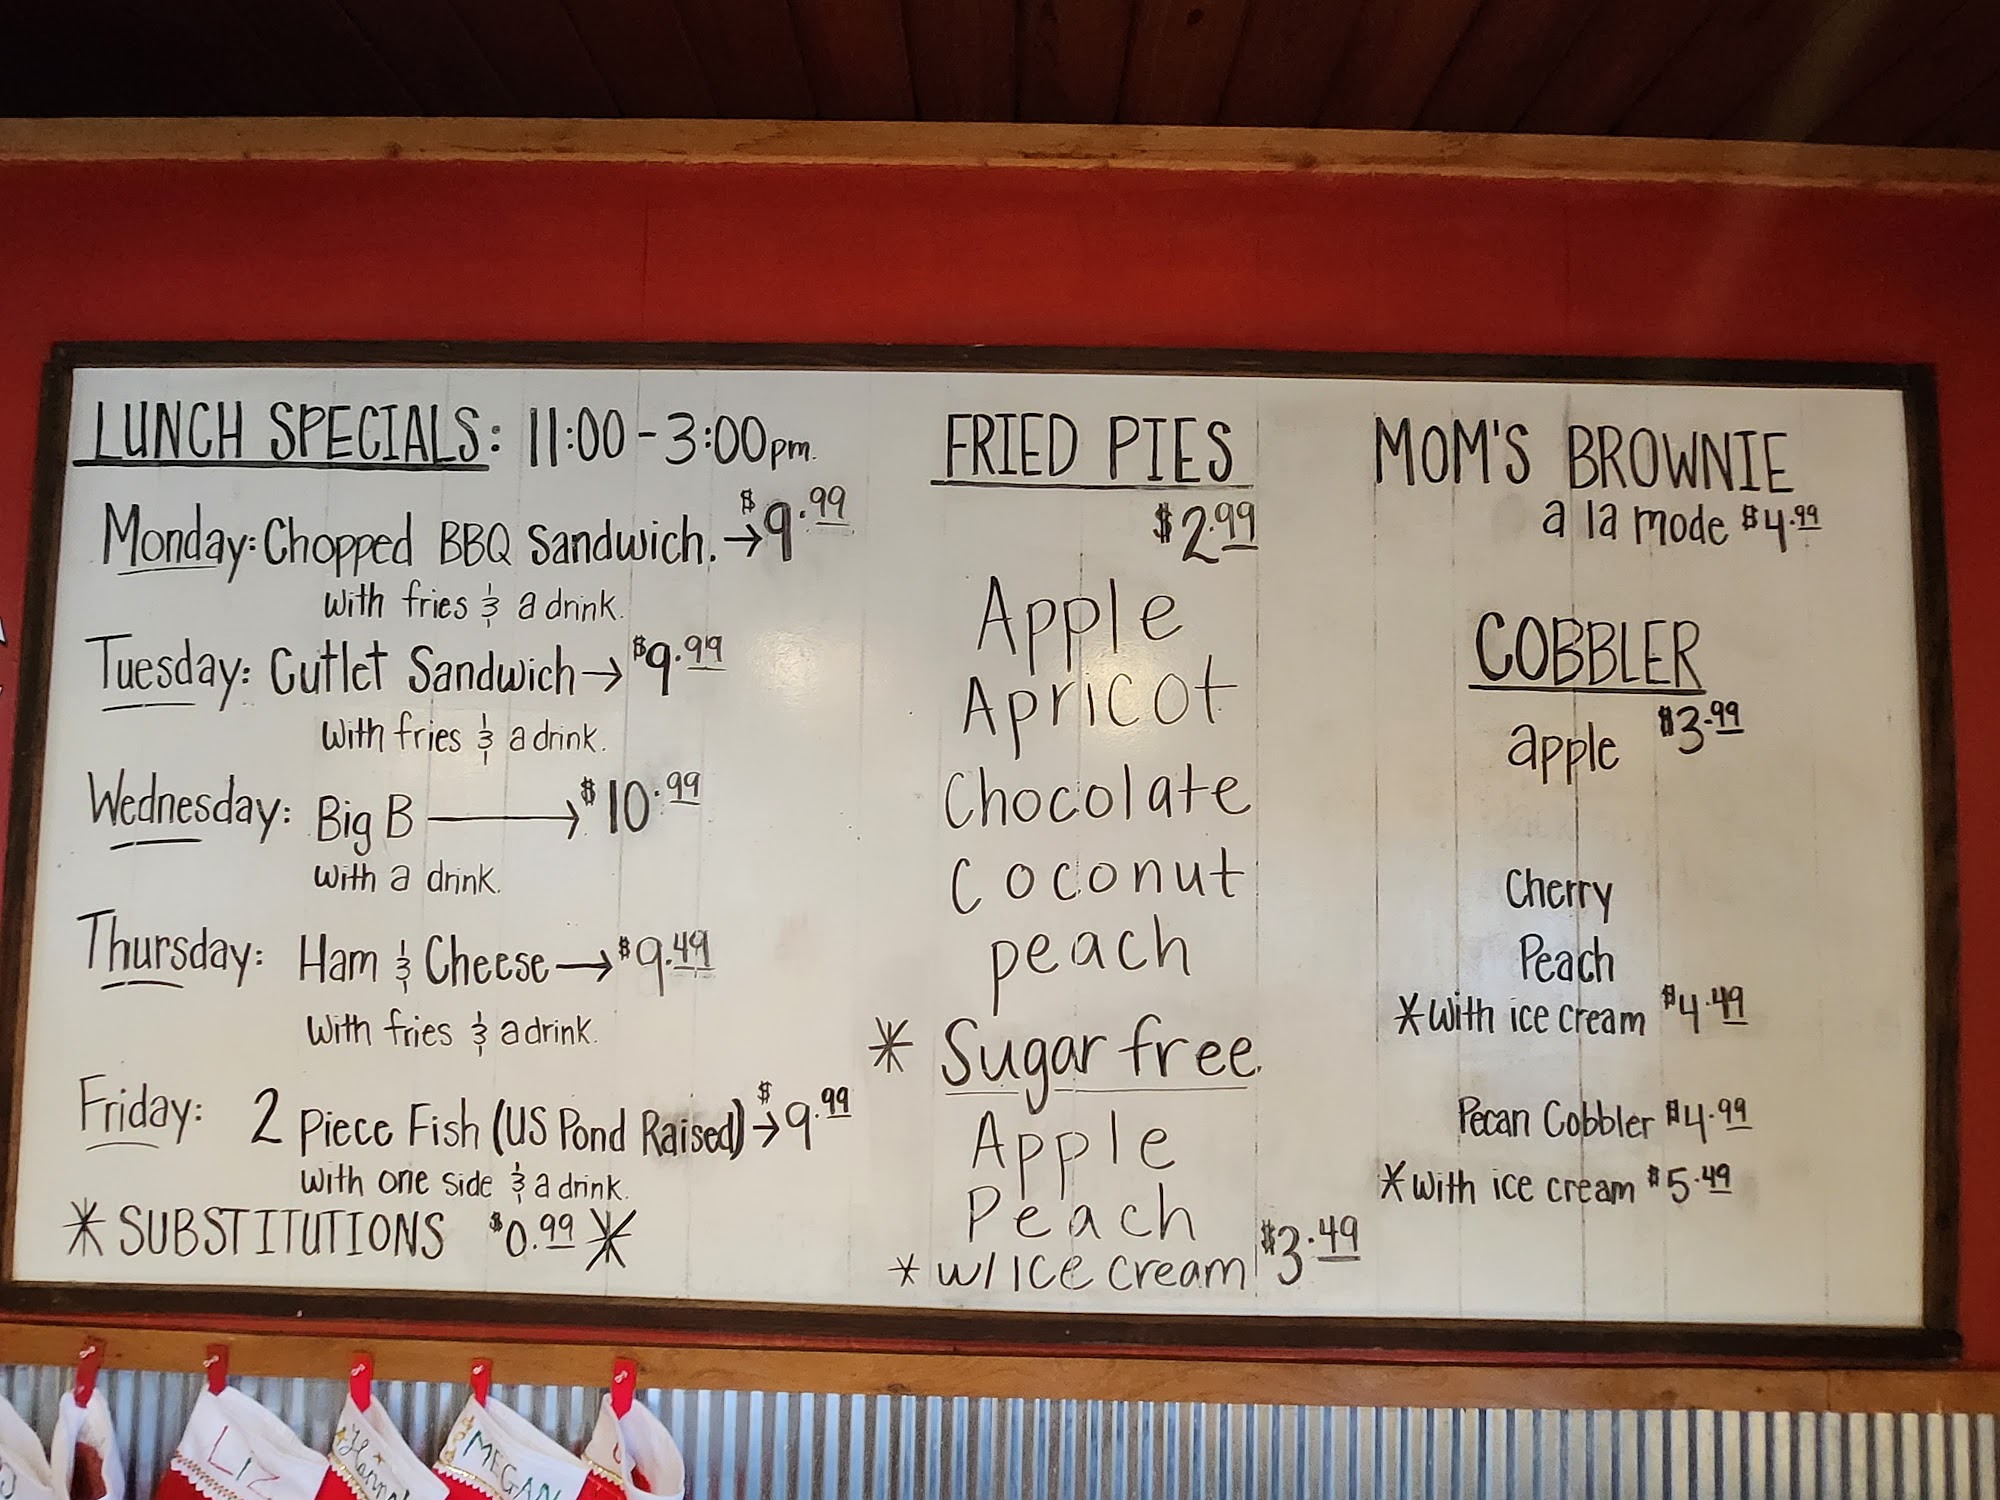 LUNCH SPECIALS: 11:00 - 3:00pm.
Monday: Chopped BBQ Sandwich. → $9.99
with fries & a drink.
Tuesday: Cutlet Sandwich → $9.99
with fries & a drink.
Wednesday: Big B → $10.99
with a drink.
Thursday: Ham & Cheese → $9.49
with fries & a drink.
Friday: 2 piece Fish (US Pond Raised) → $9.99
with one side & a drink.
* SUBSTITUTIONS $0.99 *
FRIED PIES
$2.99
Apple
Apricot
Chocolate
Coconut
peach
* Sugar free.
Apple
Peach
* w/ Ice cream $3.49
MOM'S BROWNIE
a la mode $4.99
COBBLER
apple $3.99
Cherry
Peach
* with ice cream $4.49
Pecan Cobbler $4.99
* with ice cream $5.49
LIZ
MEGAN